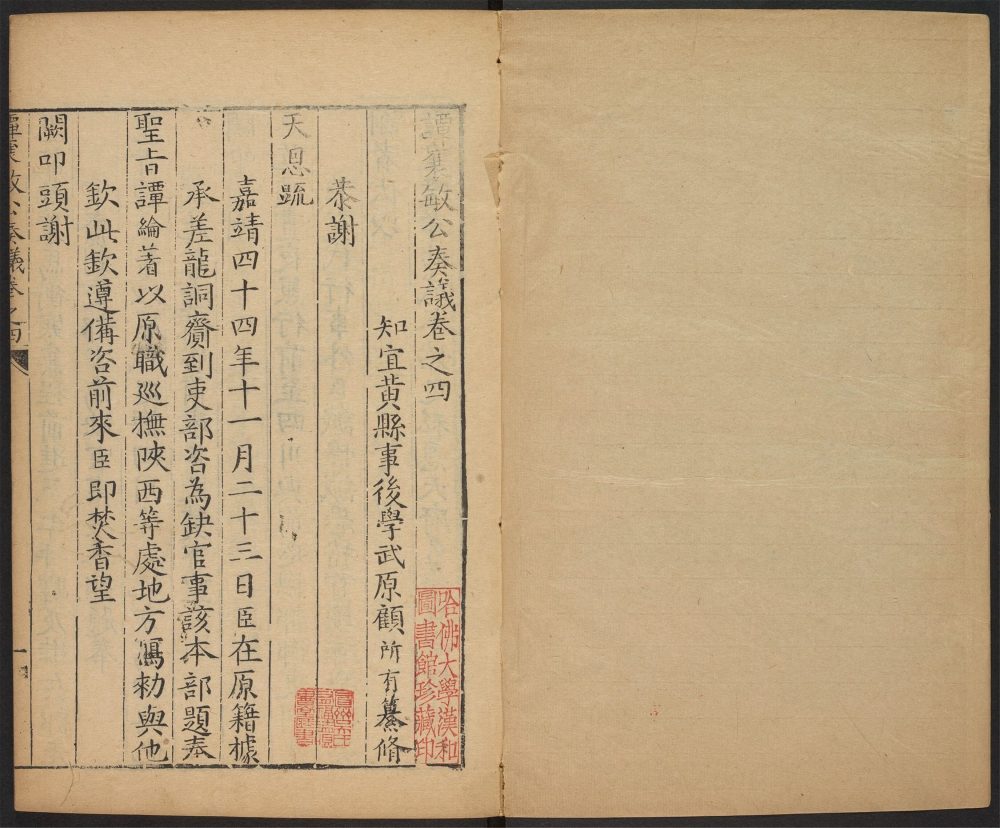 譚襄敏公奏議卷之四
知宜黃縣事後學武原顧所有纂脩
恭謝
天恩疏
嘉靖四十四年十一月二十三日臣在原籍據
承差龍詷齎到吏部咨為缺官事該本部題奉
聖旨譚綸著以原職廵撫陝西等處地方寫勑與他
欽此欽遵備咨前來臣即焚香望
闕叩頭謝
譚襄敏公奏議卷之四
一
哈佛大學漢和
圖書館珍藏印